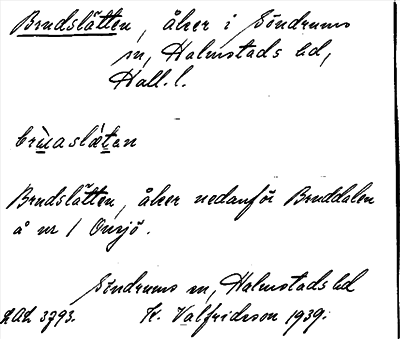 Brudslätten, åker i Söndrums
sn, Halmstads hd,
Hall. l.
brùaslǽtan
Brudslätten, åker nedanför Bruddalen
å nr 1 Onsjö.
Söndrums sn, Halmstads hd
LAL 3793. K. Valfridsson 1939.